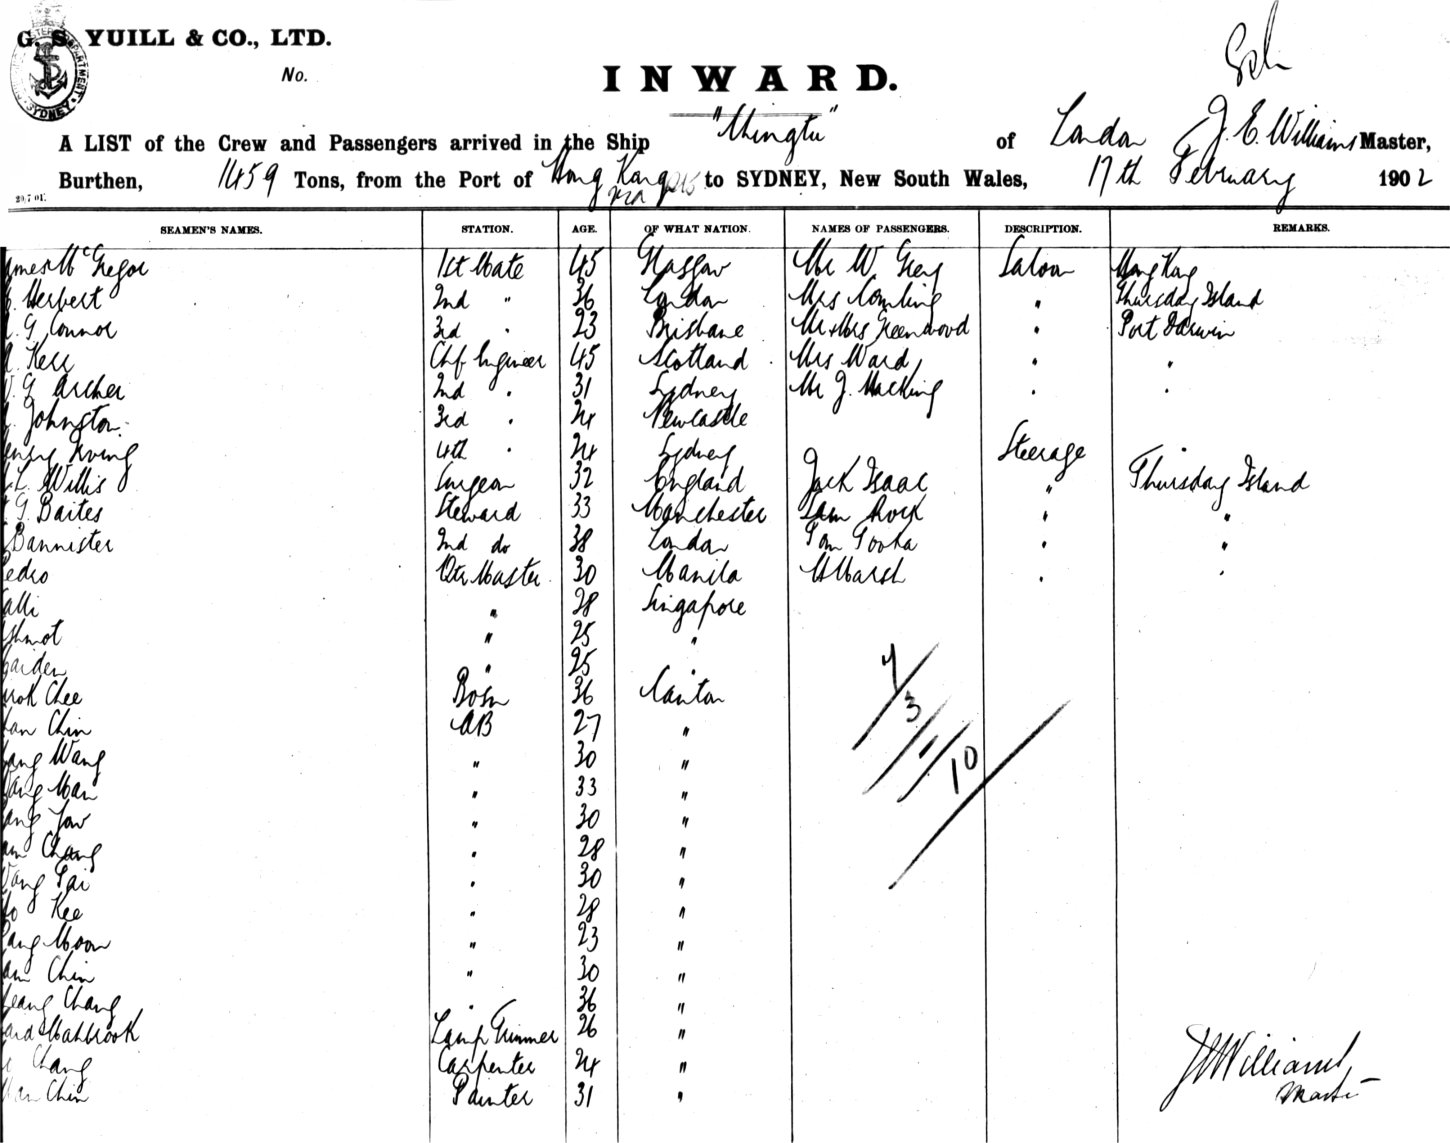 G. S. YUILL & CO., LTD.
No.
INWARD.
A LIST of the Crew and Passengers arrived in the Ship "Chingtu" of London J. E. Williams Master,
Burthen, 1459 Tons, from the Port of Hong Kong via ports to SYDNEY, New South Wales, 17th February 1902
SEAMEN'S NAMES. STATION. AGE. OF WHAT NATION. NAMES OF PASSENGERS. DESCRIPTION. REMARKS.
ames McGregor 1st Mate 45 Glasgow Mr W Grey Saloon Hong Kong
Herbert 2nd " 36 London Mrs " Thursday Island
G Connor 3rd " 23 Brisbane Mr & Mrs Greenwood " Port Darwin
Kerr Chf Engineer 45 Scotland Mrs Ward " "
G Archer 2nd " 31 Sydney Mr J. Macking " "
Johnston 3rd " 24 Newcastle
enry Irving 4th " 24 Sydney Steerage
L. Willis Surgeon 32 England Jack Isaac " Thursday Island
G. Baites Steward 33 Manchester Sam Rock " "
Bannister 2nd do 38 London Tom Tooha " "
edro Qtr Master 30 Manila W Marsh " "
alli " 28 Singapore
shmot " 25 "
aiden " 25 "
Chee Bosn 36 Canton
an Chin AB 27 "
ang Wang " 30 "
ang Man " 33 "
ang Yow " 30 "
am Chang " 28 "
ang Tai " 30 "
o Kee " 28 "
ang Moon " 23 "
am Chin " 30 "
eang Chang " 36 "
Mahbrook Lamp Trimmer 26 "
Chang Carpenter 24 "
an Chin Painter 31 "
7/3/1/10
J E Williams
Master